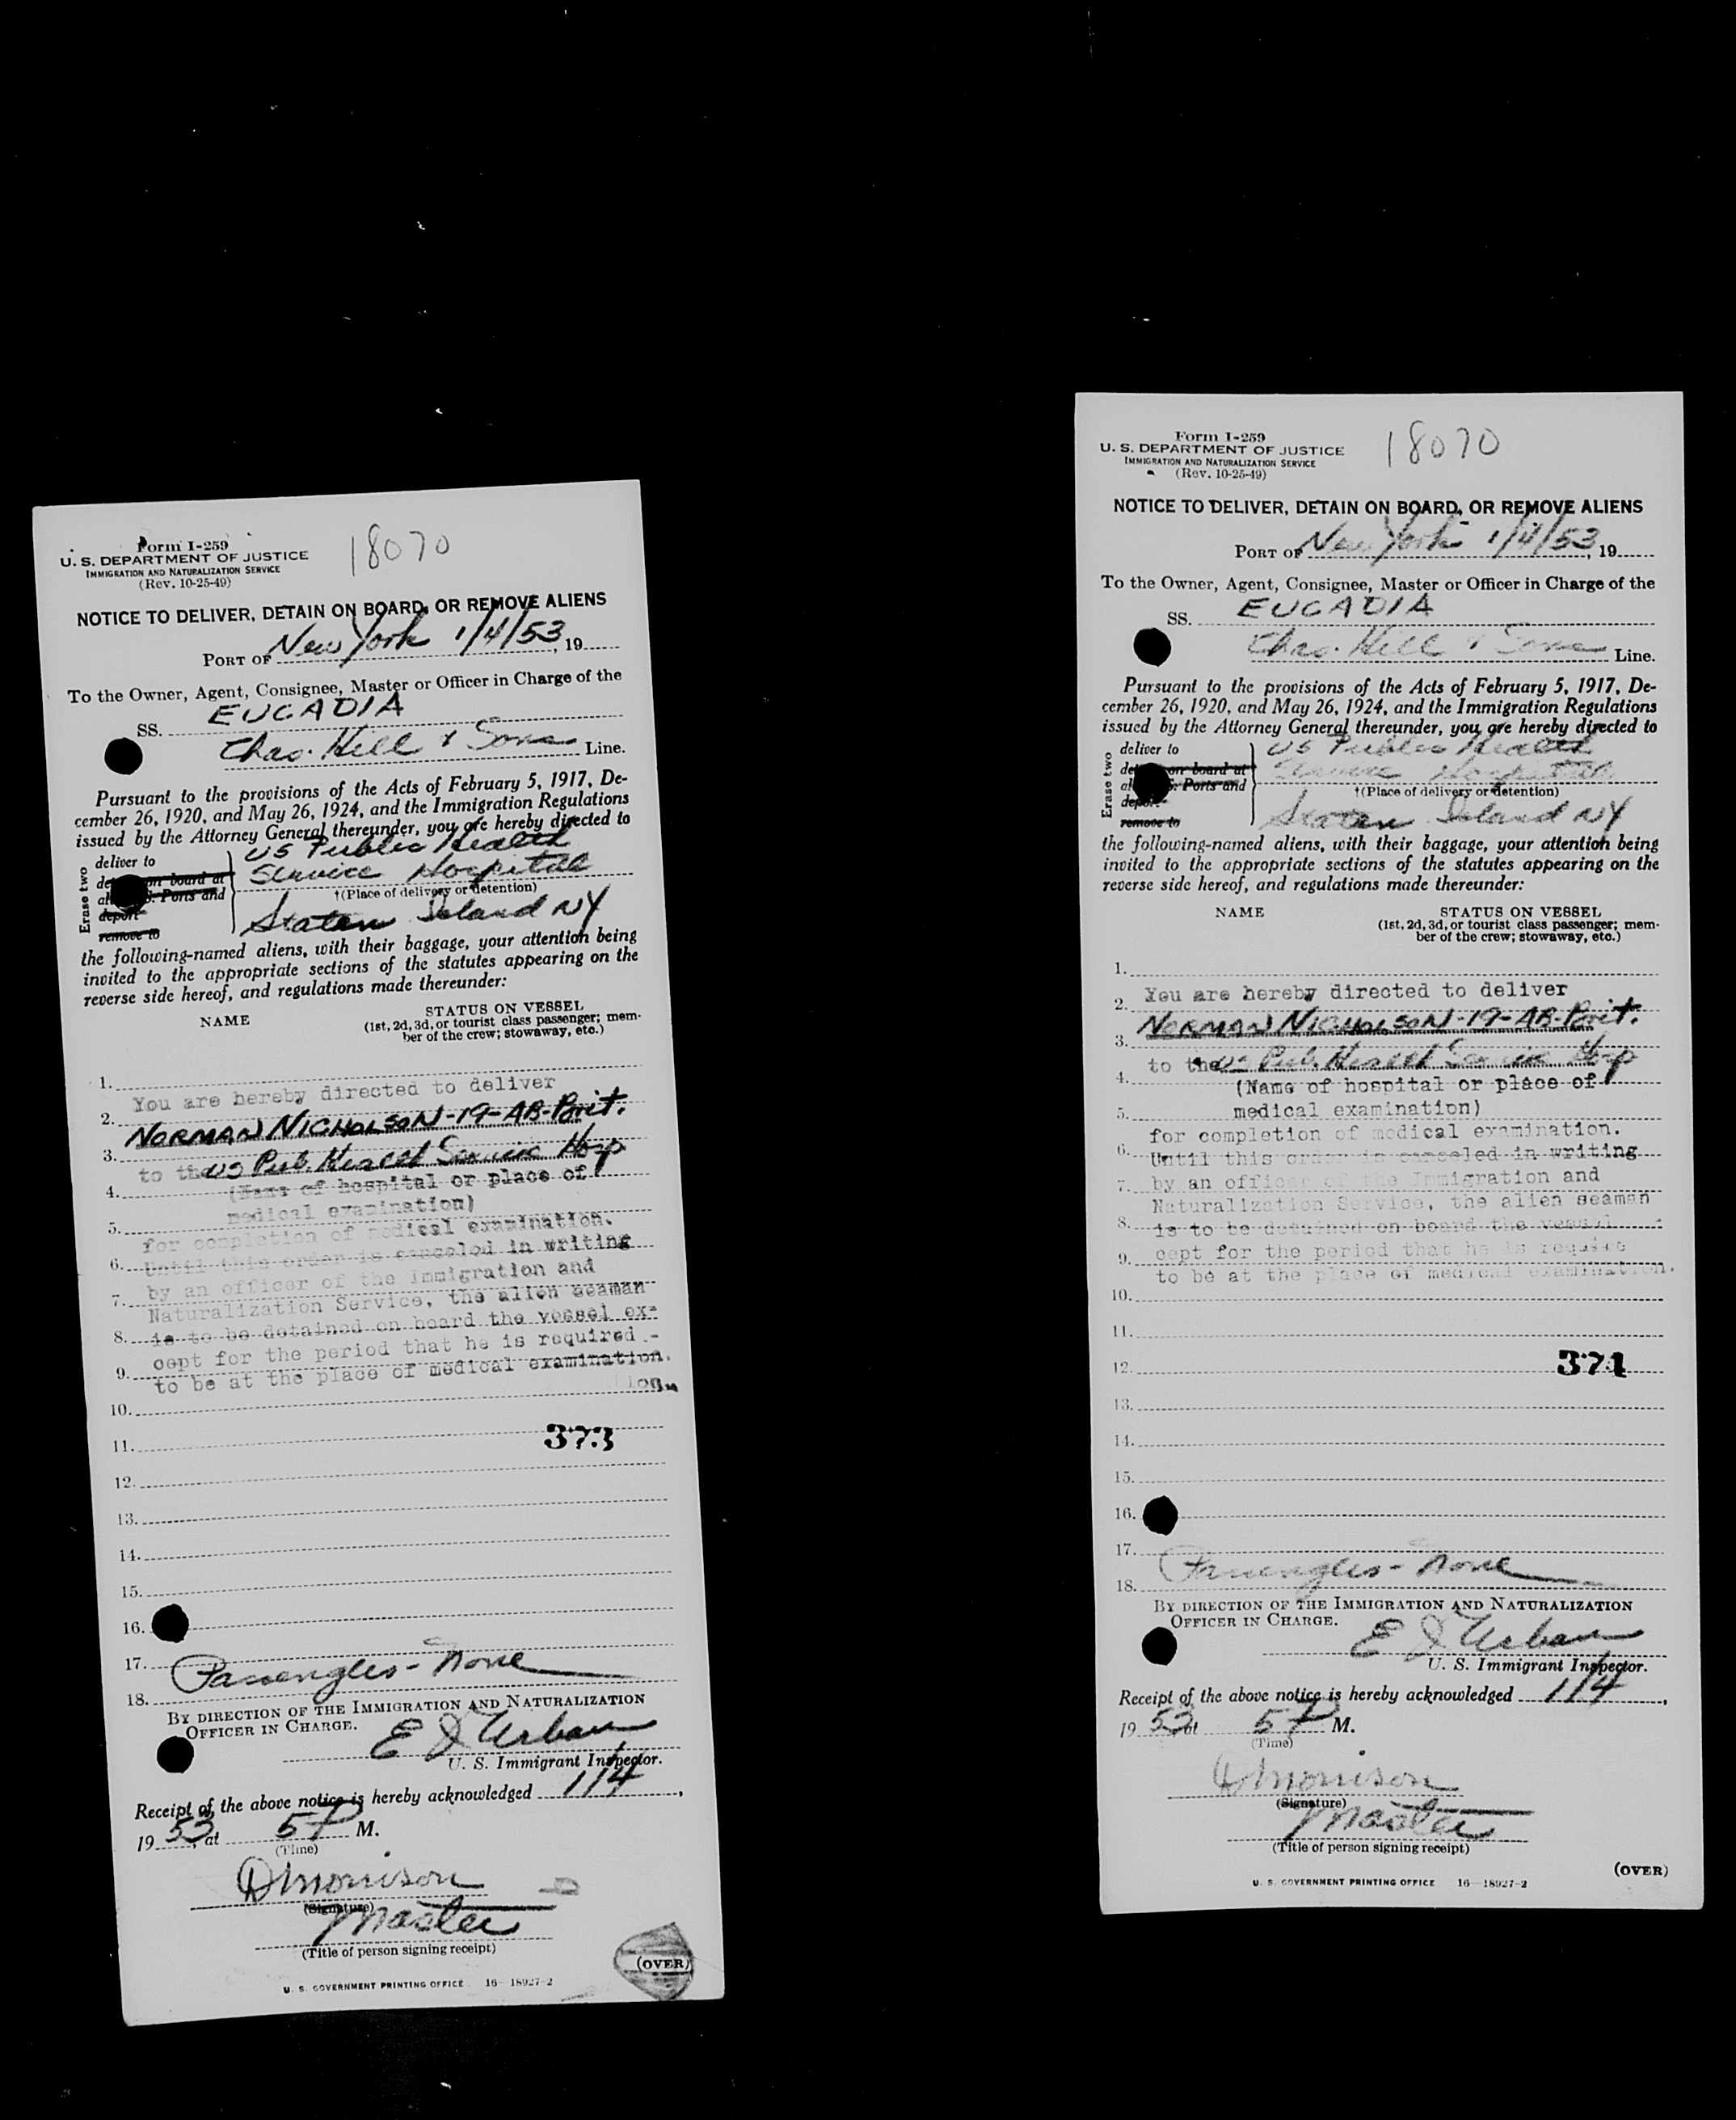 Form I-259
U. S. DEPARTMENT OF JUSTICE
IMMIGRATION AND NATURALIZATION SERVICE
(Rev. 10-25-49)
18070
NOTICE TO DELIVER, DETAIN ON BOARD, OR REMOVE ALIENS
PORT OF New York 1/4/53, 19
To the Owner, Agent, Consignee, Master or Officer in Charge of the
SS. EUCADIA
Chas. Hill & Sons Line.
Pursuant to the provisions of the Acts of February 5, 1917, De-
cember 26, 1920, and May 26, 1924, and the Immigration Regulations
issued by the Attorney General thereunder, you are hereby directed to
Erase two
deliver to
on board at
Ports and
deport
remove to
US Public Health
Service Hospital
†(Place of delivery or detention)
Staten Island NY
the following-named aliens, with their baggage, your attention being
invited to the appropriate sections of the statutes appearing on the
reverse side hereof, and regulations made thereunder:
NAME
STATUS ON VESSEL
(1st, 2d, 3d, or tourist class passenger; mem-
ber of the crew; stowaway, etc.)
1.
You are hereby directed to deliver
2.
NORMAN NICHOLSON-19-AB-Brit.
3.
to the US Pub. Health Service Hosp
4.
(Name of hospital or place of
medical examination)
5.
for completion of medical examination.
6. Until this order is canceled in writing
by an officer of the Immigration and
7.
Naturalization Service, the alien seaman
8. is to be detained on board the vessel ex-
cept for the period that he is required -
9.
to be at the place of medical examination.
10.
11.
373
12.
13.
14.
15.
16.
17.
Passengers - None
18.
BY DIRECTION OF THE IMMIGRATION AND NATURALIZATION
OFFICER IN CHARGE.
E J Urban
U. S. Immigrant Inspector.
Receipt of the above notice is hereby acknowledged 1/4,
19 53, at 5 P M.
(Time)
D Morrison
(Signature)
Master
(Title of person signing receipt)
(OVER)
U. S. GOVERNMENT PRINTING OFFICE 16-18927-2
Form I-259
U. S. DEPARTMENT OF JUSTICE
IMMIGRATION AND NATURALIZATION SERVICE
(Rev. 10-25-49)
18070
NOTICE TO DELIVER, DETAIN ON BOARD, OR REMOVE ALIENS
PORT OF New York 1/4/53, 19
To the Owner, Agent, Consignee, Master or Officer in Charge of the
SS. EUCADIA
Chas. Hill & Sons Line.
Pursuant to the provisions of the Acts of February 5, 1917, De-
cember 26, 1920, and May 26, 1924, and the Immigration Regulations
issued by the Attorney General thereunder, you are hereby directed to
Erase two
deliver to
on board at
Ports and
deport
remove to
US Public Health
Service Hospital
†(Place of delivery or detention)
Staten Island NY
the following-named aliens, with their baggage, your attention being
invited to the appropriate sections of the statutes appearing on the
reverse side hereof, and regulations made thereunder:
NAME
STATUS ON VESSEL
(1st, 2d, 3d, or tourist class passenger; mem-
ber of the crew; stowaway, etc.)
1.
You are hereby directed to deliver
2.
NORMAN NICHOLSON-19-AB-Brit.
3.
to the US Pub. Health Service Hosp
4.
(Name of hospital or place of
5.
medical examination)
for completion of medical examination.
6. Until this order is canceled in writing
7. by an officer of the Immigration and
Naturalization Service, the alien seaman
8. is to be detained on board the vessel
9. cept for the period that he is require
to be at the place of medical examination.
10.
11.
12.
371
13.
14.
15.
16.
17.
Passengers - None
18.
BY DIRECTION OF THE IMMIGRATION AND NATURALIZATION
OFFICER IN CHARGE.
E J Urban
U. S. Immigrant Inspector.
Receipt of the above notice is hereby acknowledged 1/4,
19 53 at 5 P M.
(Time)
D Morrison
(Signature)
Master
(Title of person signing receipt)
(OVER)
U. S. GOVERNMENT PRINTING OFFICE 16-18927-2